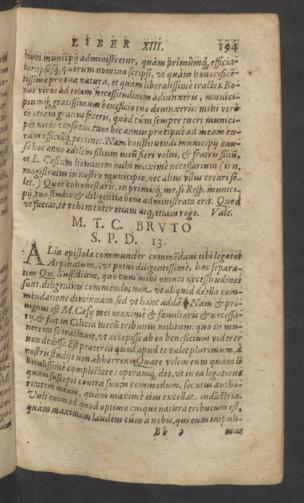 LIBER XIII. 194
bium municipij administretur, quàm primùmq́; efficia-
tur: ipsosq́;, quorum nomina scripsi, vt quàm honorifice-
tissimè pro tua natura, et quam liberalissimè tractes. Bo-
nos viros ad tuam necessitudinem adiunxeris, munici-
piumq́; gratissimum beneficio tuo deuinxeris: mihi verò
etiam gratius feceris, quòd cùm semper tueri munici-
pes meos consueui, tum hic annus præcipuè ad meam cu-
ram officiumq́; pertinet. Nam constituendi municipij cau-
sa hoc anno ædilem filium meũ fieri volui, & fratris filiũ,
et L. Cæsium hominem mihi maximè necessarium (is n.
magistratus in nostro municipio, nec alius vllus creari so-
let.) Quos cohonestaris, in primisq́; me, si Resp. munici-
pij, tuo studio & diligentia bene administrata erit. Quod
vt facias, te vehementer etiam atq; etiam rogo. Vale.
M. T. C. BRVTO
S. P. D. 13.
ALia epistola communiter commẽdaui tibi legatos
Arpinatum, vt potui diligentissimè, hac separa-
tim Qu. Fufidium, quo cum mihi omnes necessitudines
sunt, diligentius commendo, non vt aliquid de illa com-
mendatione diminuam, sed vt hanc addã: Nam & pri-
uignus est M. Cæsij mei maximè & familiaris & necessa-
rij, & fuit in Cilicia mecũ tribunus militum: quo in mu-
nere ita se tractauit, vt accepisse ab eo beneficium viderer
non dedisse. Est præterea quod apud te valet plurimum, à
nostris studijs non abhorrens. Quare velim eum quàm li-
beralissimè complectare: operamq́; des, vt in ea legatione
quam suscepit contra suum commodum, secutus autho-
ritatem meam, quàm maximè eius excellat industria.
Vult enim, id quod optimo cuique natura tributum est,
quam maximam laudem cùm à nobis, qui eum impuli-
Bb 2